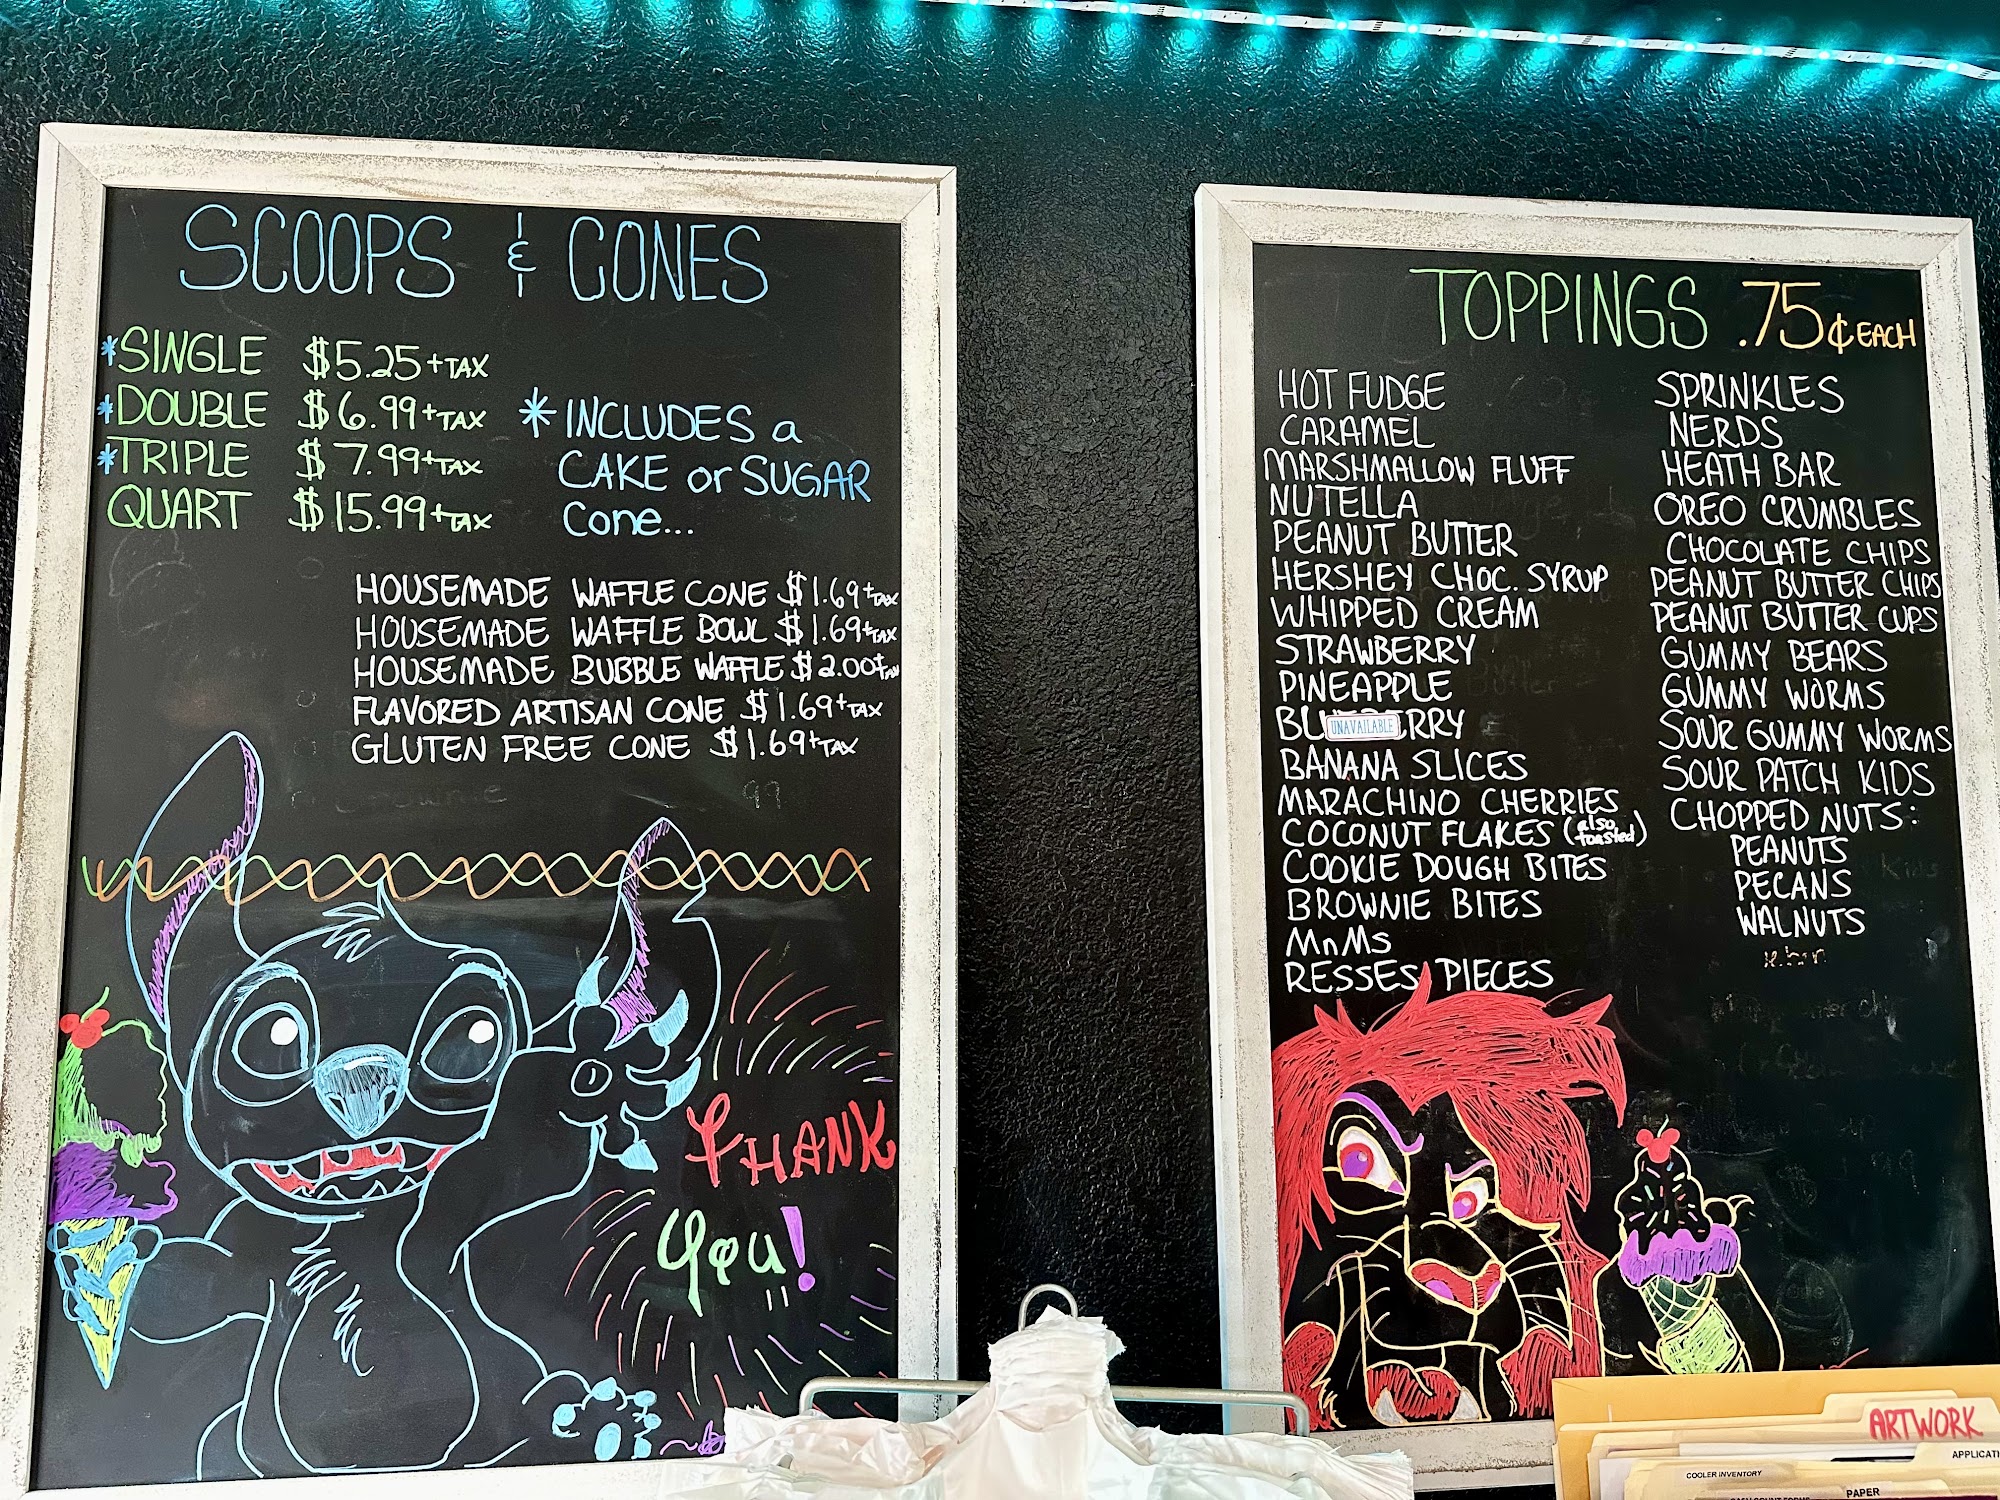 SCOOPS & CONES
*SINGLE $5.25+TAX
*DOUBLE $6.99+TAX
*TRIPLE $7.99+TAX
QUART $15.99+TAX
*INCLUDES a
CAKE or SUGAR
Cone...
HOUSEMADE WAFFLE CONE $1.69+TAX
HOUSEMADE WAFFLE BOWL $1.69+TAX
HOUSEMADE BUBBLE WAFFLE $2.00+TAX
FLAVORED ARTISAN CONE $1.69+TAX
GLUTEN FREE CONE $1.69+TAX
THANK
you!
TOPPINGS .75¢ EACH
HOT FUDGE
CARAMEL
MARSHMALLOW FLUFF
NUTELLA
PEANUT BUTTER
HERSHEY CHOC. SYRUP
WHIPPED CREAM
STRAWBERRY
PINEAPPLE
BLUEBERRY
UNAVAILABLE
BANANA SLICES
MARACHINO CHERRIES
COCONUT FLAKES (also toasted)
COOKIE DOUGH BITES
BROWNIE BITES
MnMs
RESSES PIECES
SPRINKLES
NERDS
HEATH BAR
OREO CRUMBLES
CHOCOLATE CHIPS
PEANUT BUTTER CHIPS
PEANUT BUTTER CUPS
GUMMY BEARS
GUMMY WORMS
SOUR GUMMY WORMS
SOUR PATCH KIDS
CHOPPED NUTS:
PEANUTS
PECANS
WALNUTS
ARTWORK
COOLER INVENTORY
PAPER